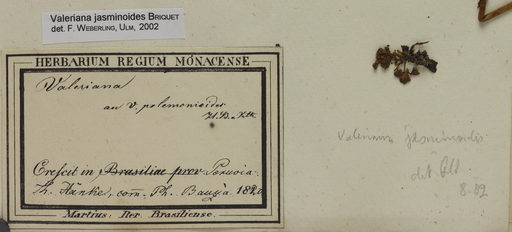 Valeriana jasminoides BRIQUET
det. F. WEBERLING, ULM, 2002
HERBARIUM REGIUM MONACENSE
Valeriana
an V. polemonioides
H.B. & Kth.
Crescit in Brasiliae prov. Peruvia.
Th. Hänke, com. Ph. Bauzà. 1820.
Martius: Iter Brasiliense.
Valeriana jasminoides
det.
8.92